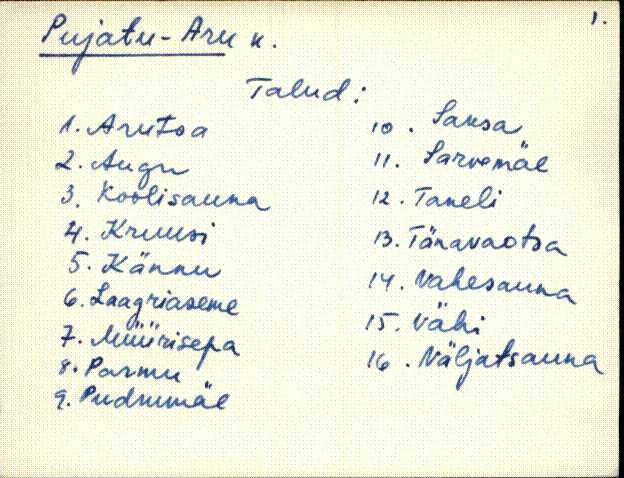 Pujatu-Aru k.
1.
Talud:
1. Arutsa
2. Augu
3. Koolisauna
4. Kruusi
5. Kännu
6. Laagriaseme
7. Müürisepa
8. Parmu
9. Pudrumäe
10. Saksa
11. Sarvemäe
12. Taneli
13. Tänavaotsa
14. Vahesauna
15. Vähi
16. Näljatsauna